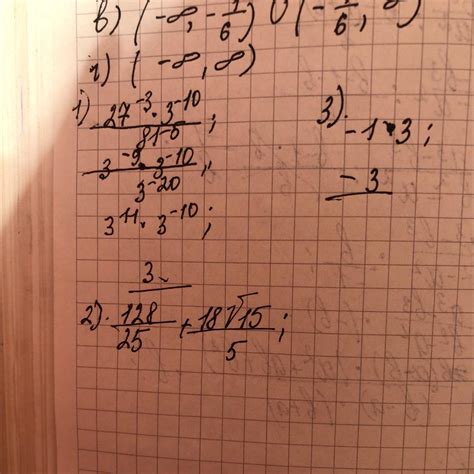 в) (-∞, -1/6) ∪ (-1/6, ∞)
г) (-∞, ∞)
1) 27⁻³ · 3⁻¹⁰ / 81⁻⁵ ;
3⁻⁹ · 3⁻¹⁰ / 3⁻²⁰ ;
3¹¹ · 3⁻¹⁰ ;
3
2) 128/25 + 18√15/5 ;
3) -1 · 3 ;
-3